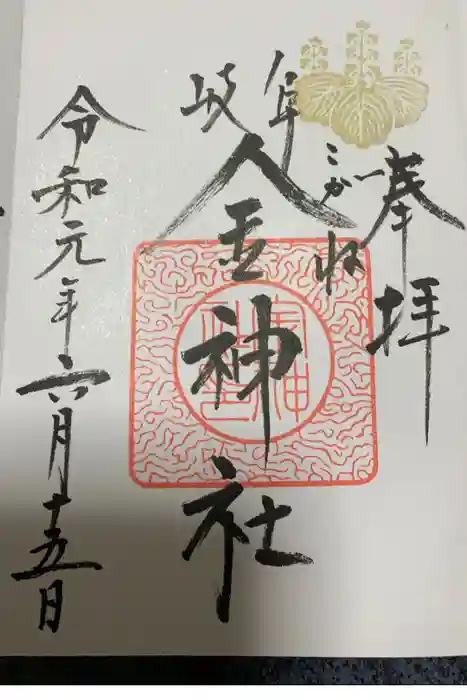 奉拝
岐阜
こがね
金神社
令和元年六月十五日